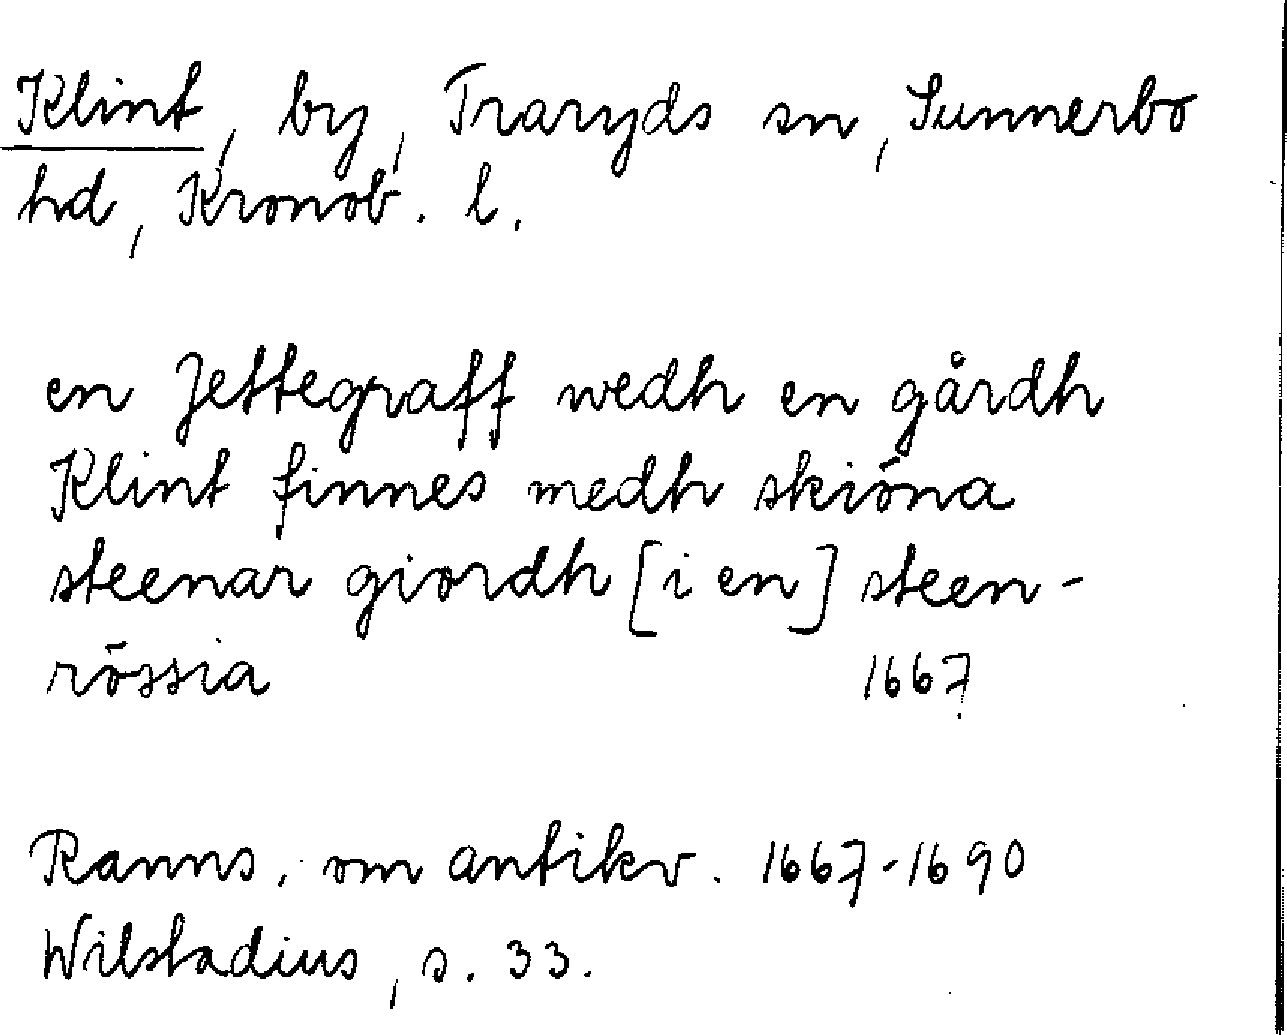 Klint, by, Traryds sn, Sunnerbo
hd, Kronob. l.
en Jettegraff wedh en gårdh
Klint finnes medh skiöna
steenar giordh [i en] steen-
rössia 1667
Ranns. om antikv. 1667-1690
Wilstadius, s. 33.